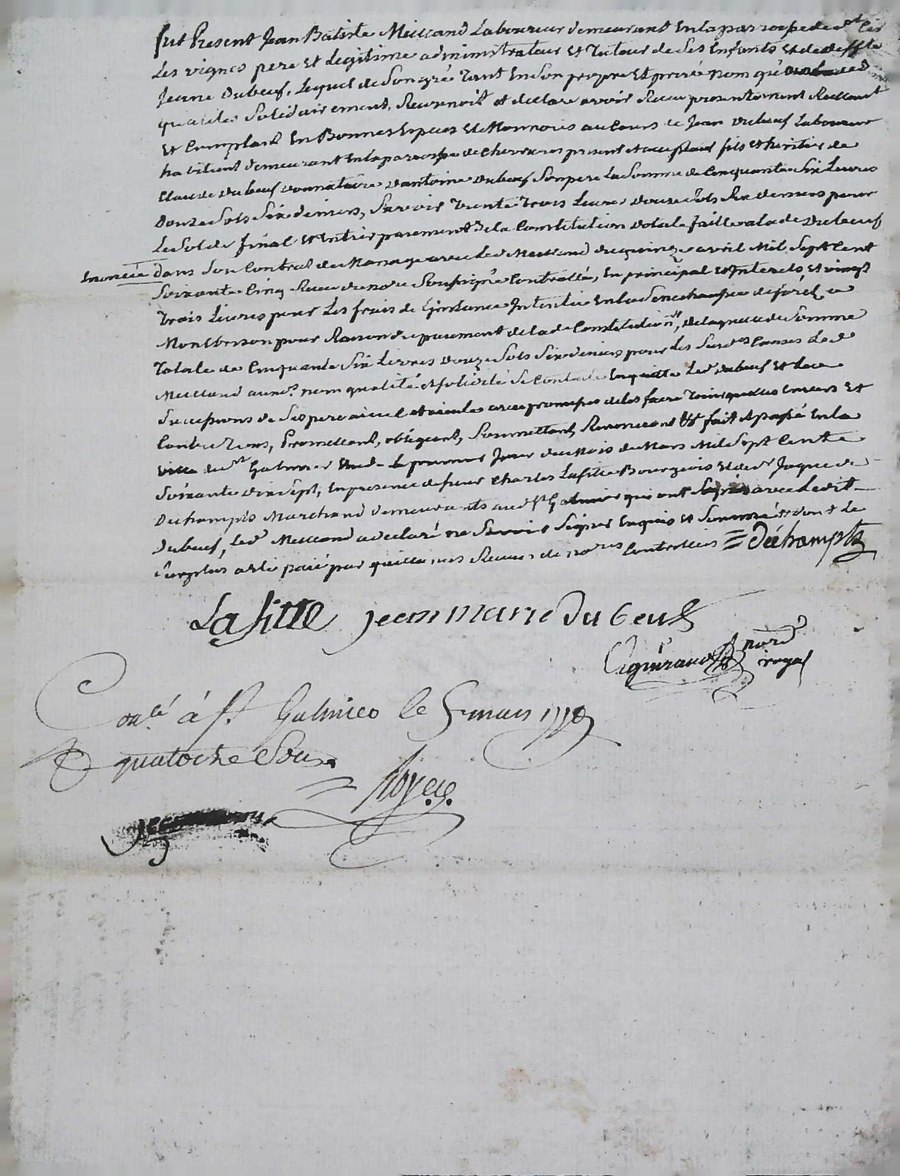 fut Present Jean Batiste Meilland Laboureur demeurant En la parroisse de st Cir
Les vignes pere Et Legitime administrateur Et Tuteur de Ses Enfants Et de deffte
Jeanne Dubeuf, Lequel de Son gré tant En Son propre Et privé nom que
qualités Solidairement, Reconnoit et declare avoir Receu presentement Reellement
Et Comptant En Bonnes Especes Et Monnoies au Cours de Jean Dubeuf Laboureur
habitant demeurant En la parroisse de Chevrieres present Et acceptant fils Et heritier de
Claude Dubeuf donnataire d'antoine Dubeuf Son pere La Somme de Cinquante Six Livres
Douze Sols Six deniers, Savoir Trente Trois Livres douze Sols Six deniers pour
Le Solde final Et Entier paiement de la Constitution dotale faitte a la de Dubeuf
Enoncée dans Son Contrat de Mariage avec le Meilland du quinze avril Mil Sept Cent
Soixante Cinq Receu du nore Soussigné Controllé, En principal Et Interets Et vingt
Trois Livres pour Les frais de L'instance Intentée En la Senechaussée de forez a
Montbrison pour Raison du paiement de la de Constitution, de laquelle Somme
Totale de Cinquante Six Livres Douze Sols Six deniers pour Les Susdes Causes Le d
Meilland aux nom qualité Et Solidité Se Contente En quitte Le d Dubeuf Et les
Successions de Ses pere aieul et aieule avec promesse de les faire Tenir quittes Envers Et
Contre Tous, Promettant, obligeant, Soumettant, Renonceant Et fait Et passé En la
ville de st Galmier Le premier Jour du Mois de Mars Mil Sept Cent
Soixante dix Sept, En presence de sieur Charles Lafitte Bourgeois Et de sr Jaque
Dechamps Marchand demeurants aud st Galmier qui ont Signés avec Ledit
Dubeuf, Led Meilland a declaré ne Savoir Signer Enquis Et Sommé Et dont Le
Surplus a Eté paié par quittances Receues de nores Controllées = Dechamps
Lafitte jean marie dubeuf
nore royal
Conlé à st Galmier le 5 mars 177
quatorze Sous